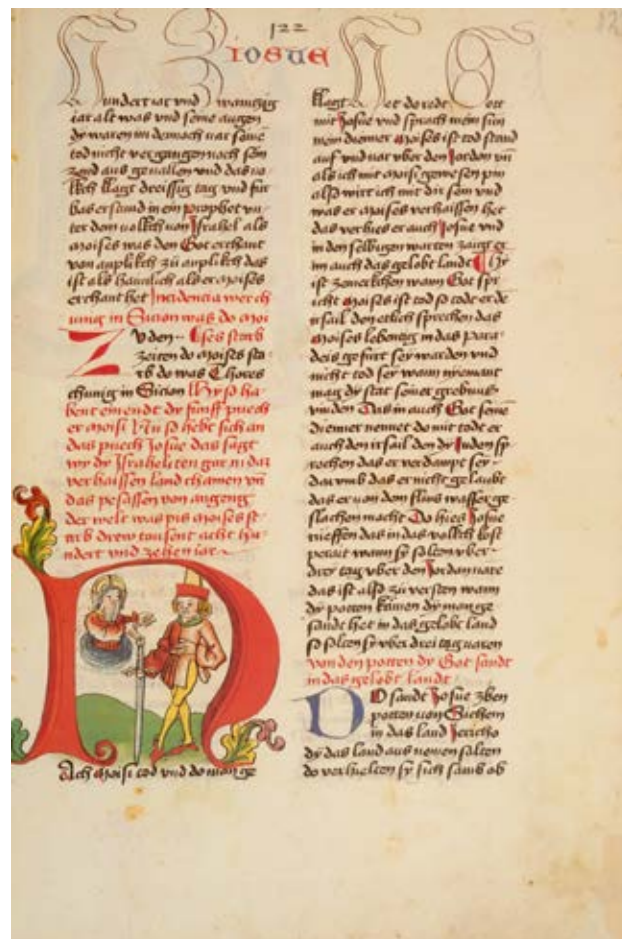 122
IOSUE
Hundert iar vnd zwainczig
iar alt was vnd seine augen
dy waren im dennoch nit seine
zend nicht vergangen noch sein
zend aus geuallen vnd das uo
lkch klagt dreissig tag vnd für
bas erstand in ein prophet vn
ter dem uolkch von Israhel als
Moises was den Got erchant
von anplikch zü anplikch das
ist als hamlich als er Moises
erchant het Incidencia wer ch
unig in Sicion was do moi
Zu den ses starb
zeiten do Moises sta
rb do was Chores
chunig in Sicion Hy so ha
bent ein endt dy fünff puech
er Moisi Nu so hebt sich an
das puech Josue das sagt
wy dy Israheliten gar in daz
verhaissen land chamen vn
das pesassen von angeng
der welt was pis Moises st
arb drew tausent acht hu
ndert vnd zehen iar
Nach Moisi tod vnd do man ge
klagt het do redt Gott
mit Josue vnd sprach mein sun
mein diener Moises ist tod stand
auf vnd var vber den Jordan vn
als ich mit Moisi gewesen pin
also wirt ich mit dir sein vnd
was er Moises verhaissen het
das verhies er auch Josue vnd
in den selbigen warten zaigt er
im auch das gelobt landt Hy
ist zemerkchen wann Got spr
icht Moises ist tod so todt er de
irsail den etlich sprechen das
Moises lebentig in das para
deis gefürt sey warden vnd
nicht tod sey wann nyemant
mag dy stat seiner grebnus
vinden Das in auch Got seine
diener nennet do mit todt er
auch den irsail den dy Juden sp
rochen das er verdampt sey
darumb das er nicht gelaubt
das er von dem flins wasser ge
slachen macht Do hies Josue
rueffen das in das volkch kost
perait wann sy solten vber
drey tag vber den Jordan uare
das ist also zü versten wann
dy potten kämen dy man ge
sandt het in das gelobt land
so solten sy vber drei tag uaren
von den potten dy Got sandt
in das gelobt landt
Do sandt Josue zben
potten von Sichem
in das land Jericho
dy das land aus nemen solten
do verhielten sy sich sams ob